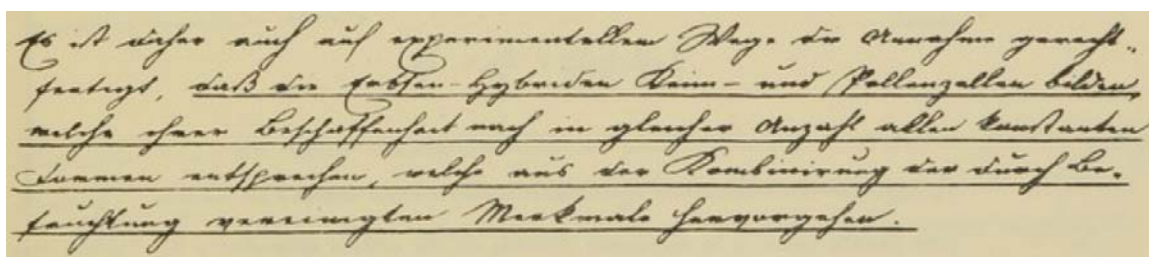 Es ist daher auch auf experimentellem Wege die Annahme gerecht-
fertigt, daß die Erbsen-Hybriden Keim- und Pollenzellen bilden,
welche ihrer Beschaffenheit nach in gleicher Anzahl allen konstanten
Formen entsprechen, welche aus der Kombinirung der durch Be-
fruchtung vereinigten Merkmale hervorgehen.